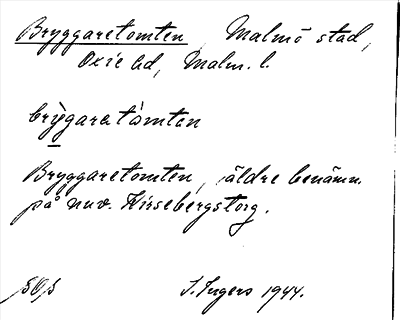 Bryggaretomten, Malmö stad,
Oxie hd, Malm. l.
brỳgaretåmten
Bryggaretomten, äldre benämn.
på nuv. Kirsebergstorg.
I. Ingers 1944.